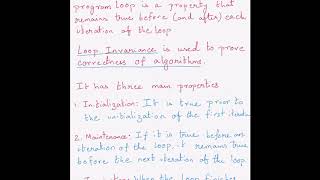 program loop is a property that
remains true before (and after) each
iteration of the loop
Loop Invariance is used to prove
correctness of algorithms.
It has three main properties
1. Initialization: It is true prior
to the initialization of the first
2. Maintenance: If it is true before an
iteration of the loop, it remains true
before the next iteration of the loop.
When the loop